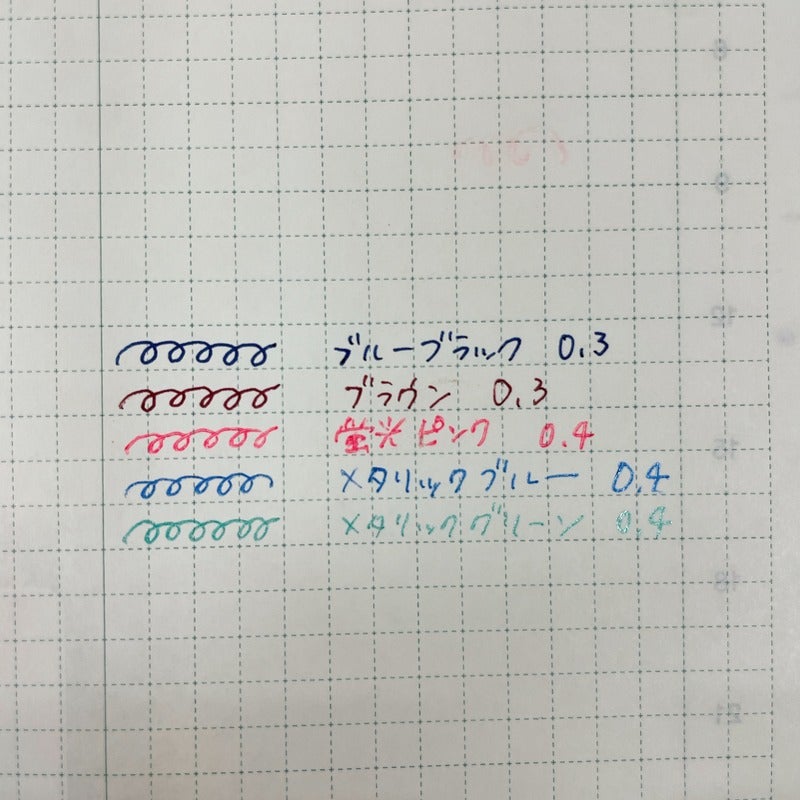 ブルーブラック 0.3
ブラウン 0.3
蛍光ピンク 0.4
メタリックブルー 0.4
メタリックグリーン 0.4